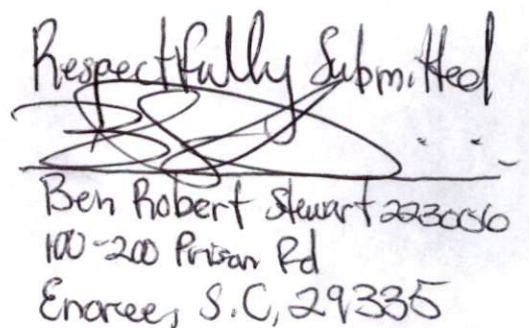 Respectfully Submitted
Ben Robert Stewart 223006
100-200 Prison Rd
Enoree, S.C, 29335